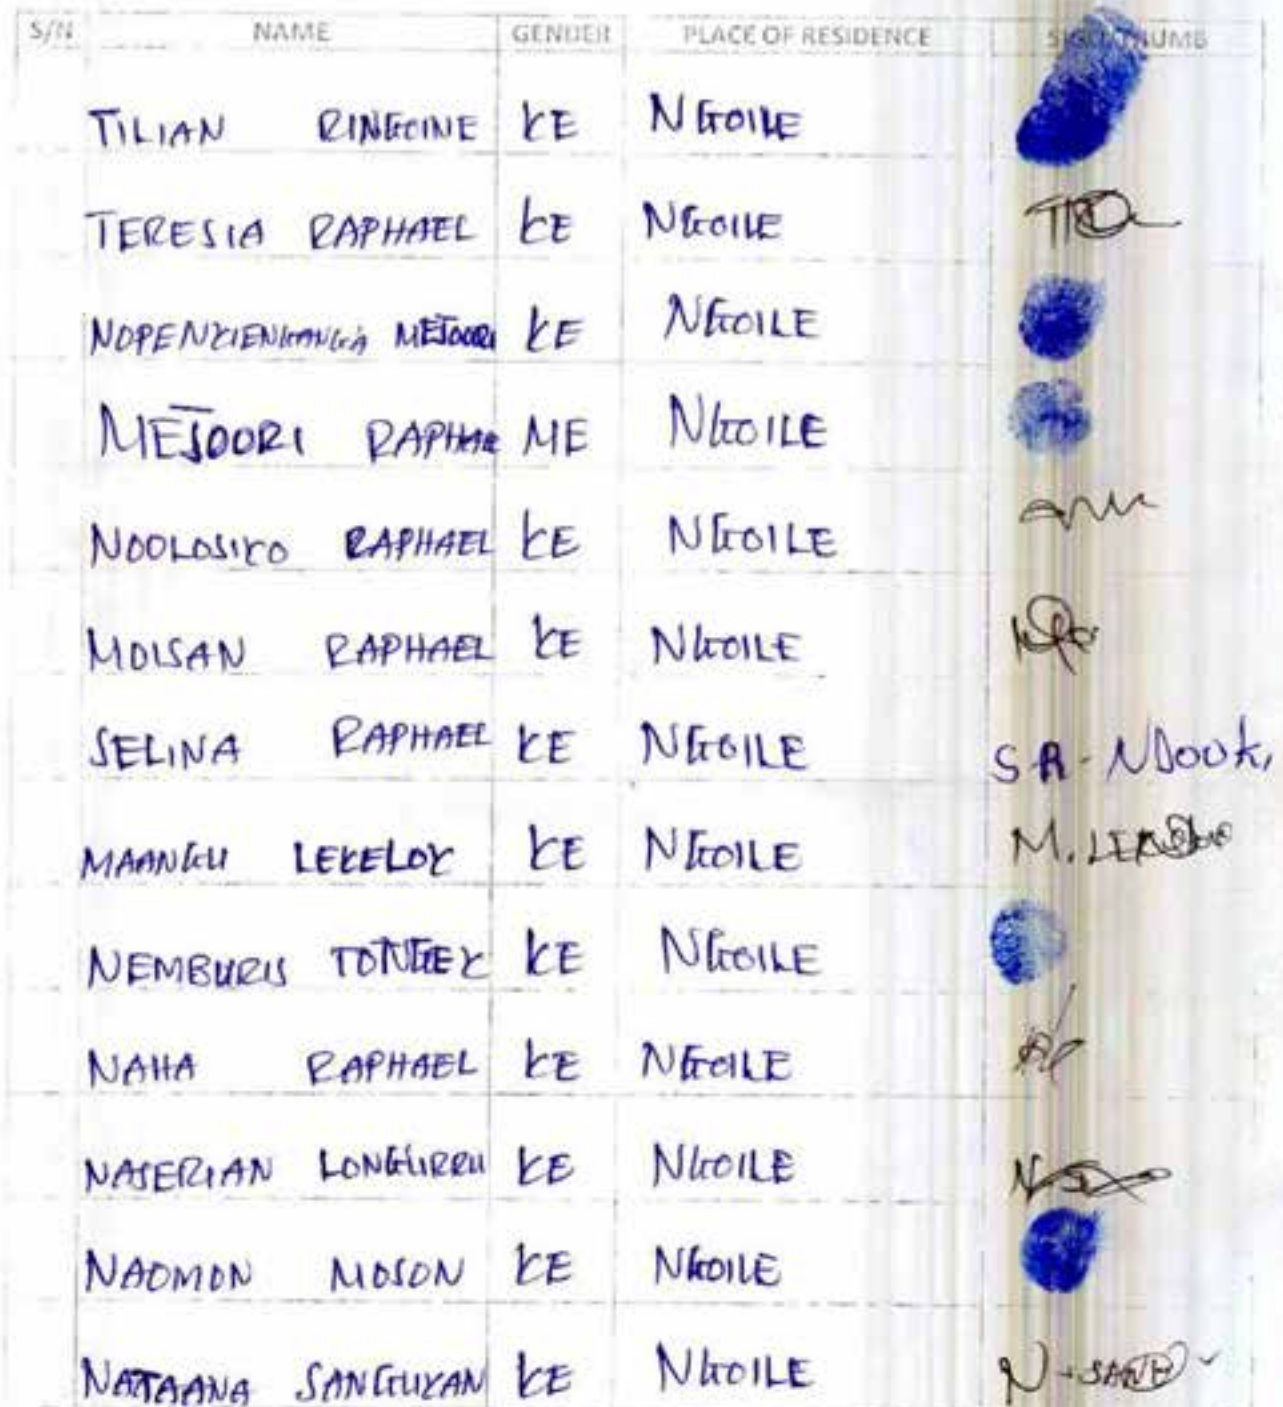 S/N NAME GENDER PLACE OF RESIDENCE SIGN/THUMB
TILIAN RINGOINE KE NGOILE
TERESIA RAPHAEL KE NGOILE
NOPENKIENGANGA MEJOORI KE NGOILE
MEJOORI RAPHAE ME NGOILE
NOOLOSIKO RAPHAEL KE NGOILE
MOISAN RAPHAEL KE NGOILE
SELINA RAPHAEL KE NGOILE SR-NDOOKI
MAANGU LEKELOK KE NGOILE M.
NEMBURIS TONGEK KE NGOILE
NAHA RAPHAEL KE NGOILE
NASERIAN LONGURRU KE NGOILE
NAOMON MOSON KE NGOILE
NATAANA SANGUYAN KE NGOILE N